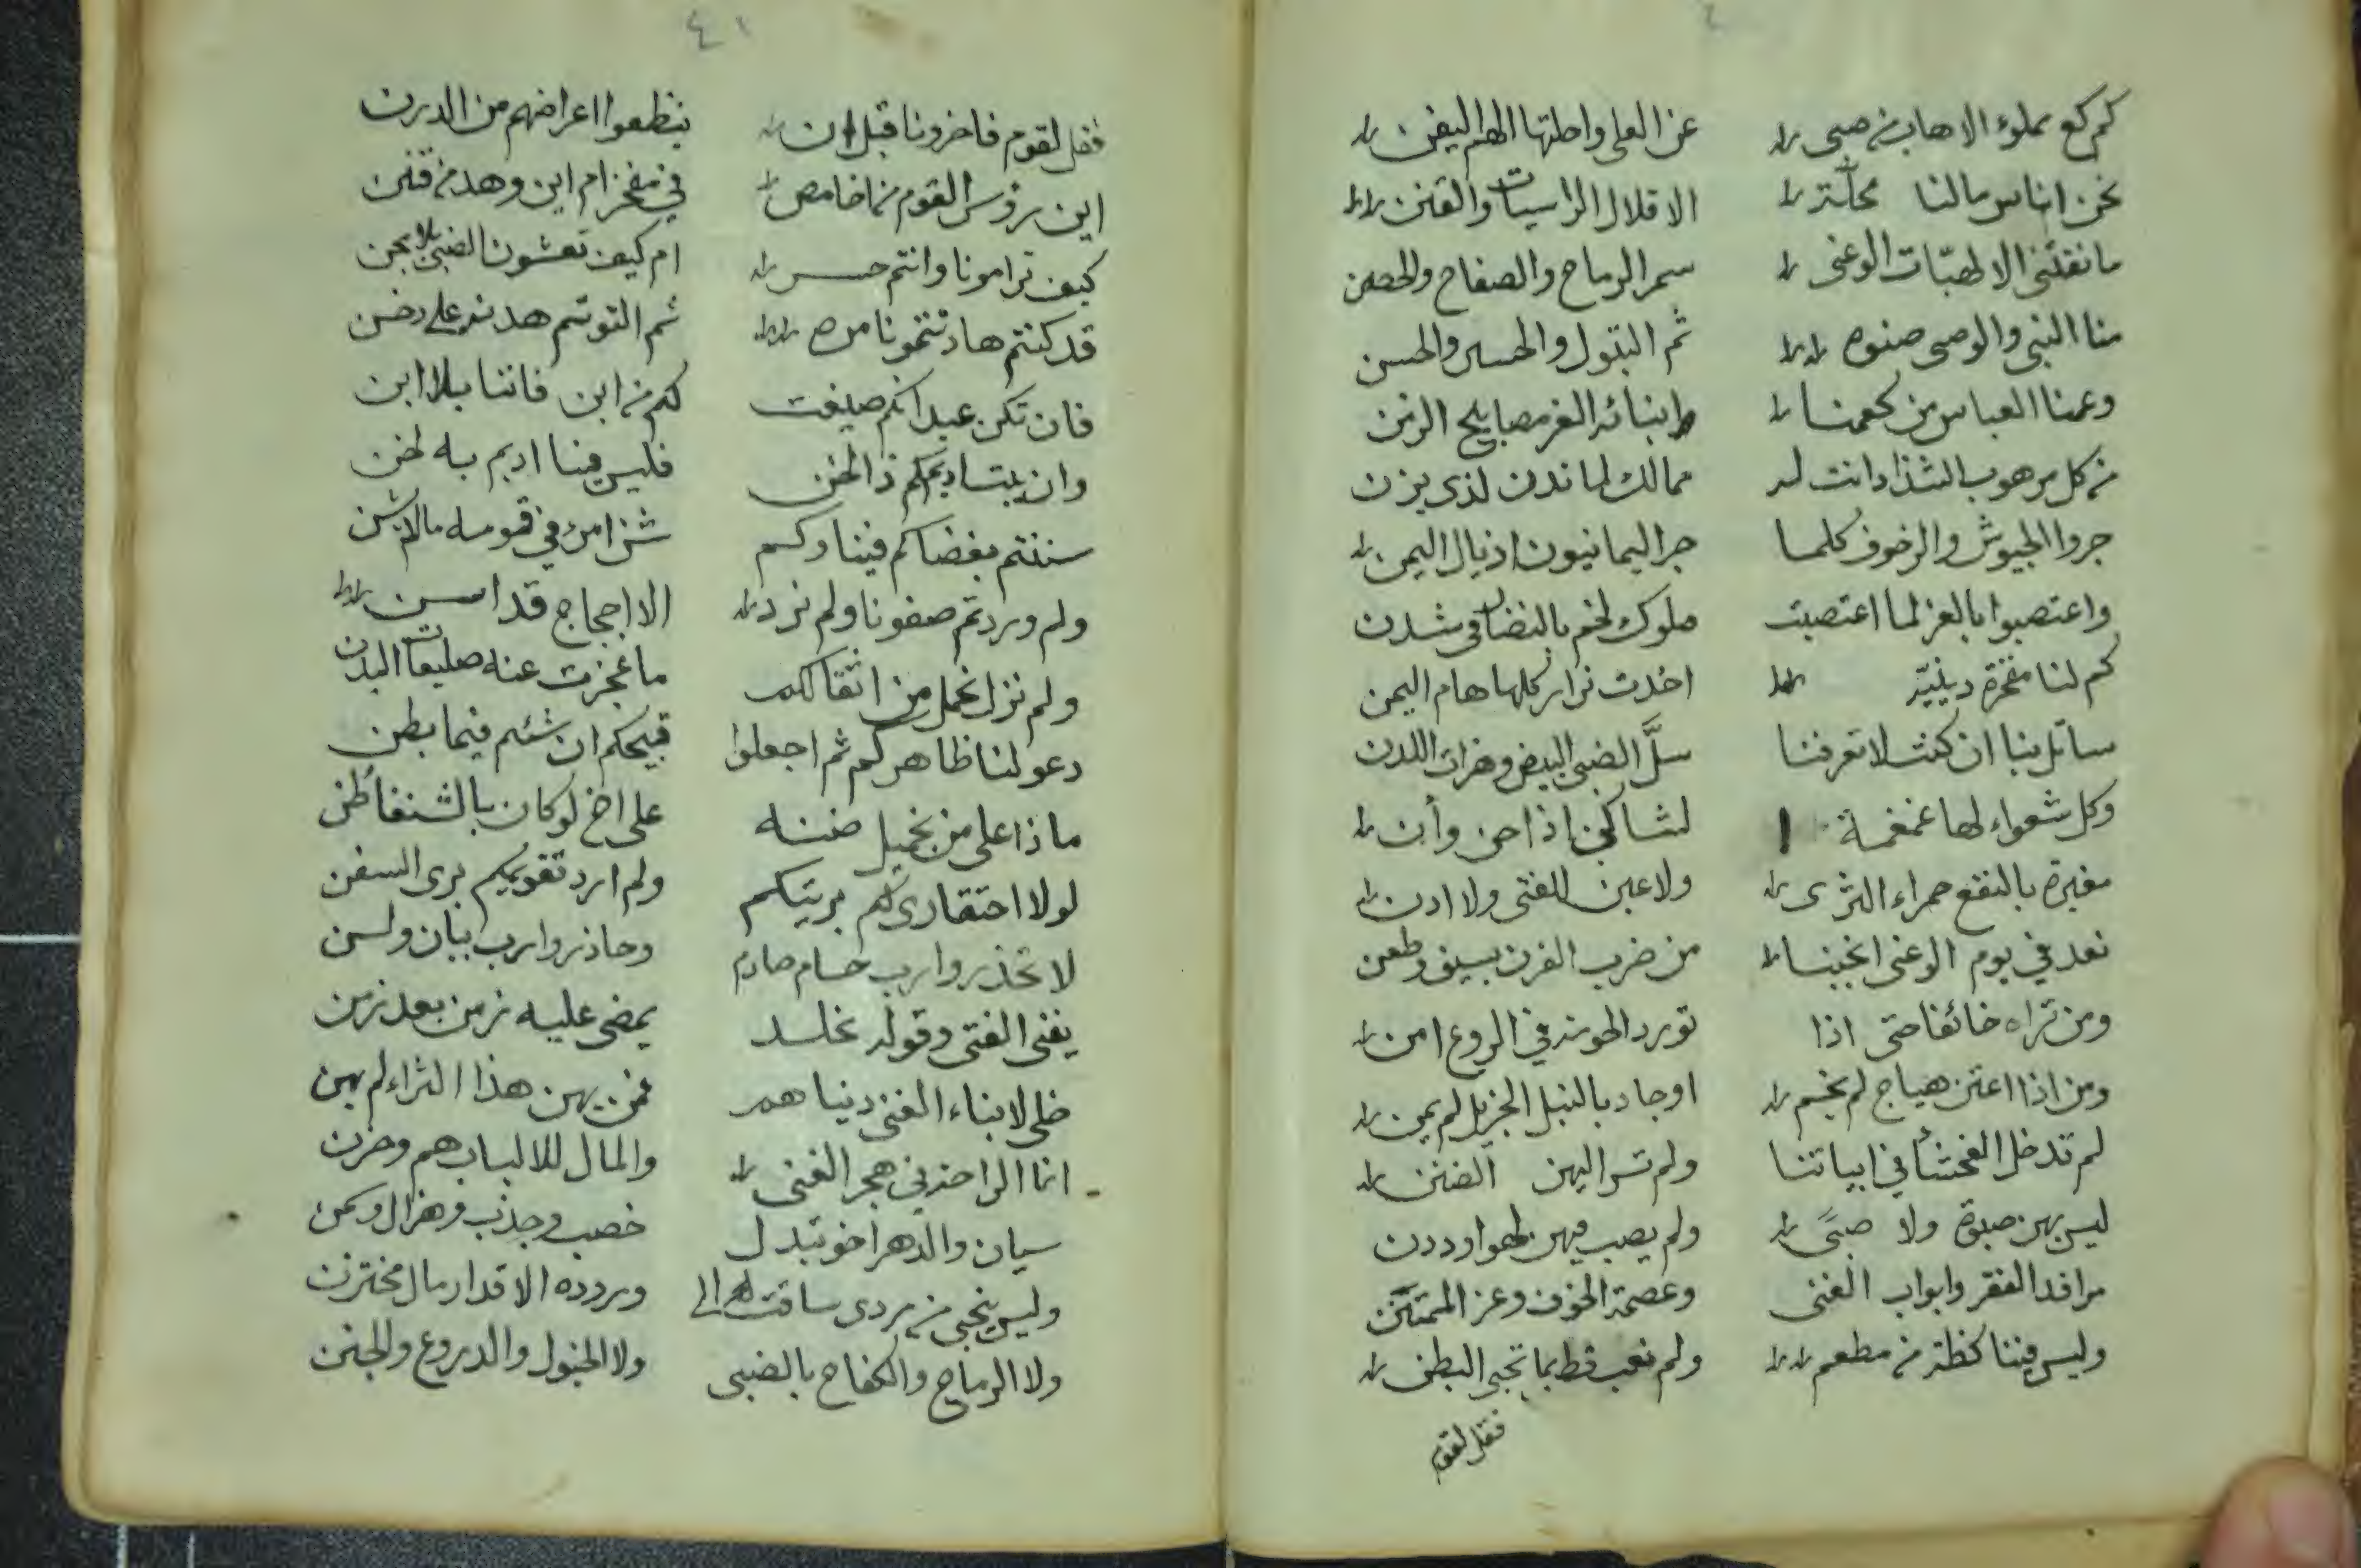 كم كع مملوء الاهاب من صبى عن العلى واحلتها الهم اليفن
نحن اناس مالنا محلة الا قلال الراسيات والقنن
ما نقتنى الا لهبّات الوغى سمر الرماح والصفاح والحصن
منا النبى والوصى صنوه ثم البتول والحسين والحسن
وعمنا العباس من كعمنا وابنائه الغر مصابيح الزمن
من كل مرهوب الشذا دانت له ممالك لما ندن لذى يزن
جروا الجيوش والزحوف كلما جر اليمانيون اذيال اليمن
واعتصبوا بالعز لما اعتصبت ملوك لخم بالنضار في شدن
كم لنا مفخرة دينيّة اخذت نزار كلها هام اليمن
سائل بنا ان كنت لا تعرفنا سلَّ الضبى البيض وهزات اللدن
وكل شعواء لها غمغمة لشاكى اذا حن وأن
مغبرة بالنقع حمراء الثرى ولا عين للفتى ولا اذن
نعد في يوم الوغى انجبنا من ضرب القرن بسيف وطعن
ومن تراه خائفا حتى اذا تورد الهونة في الروع امن
ومن اذا اعتن هياج لم يخم او جاد بالنيل الجزيل لم يمن
لم تدخل الفحشأ في ابياتنا ولم تسر اليهن الضنن
ليس بهن صبوة ولا صبًى ولم يصب فيهن لهوا وددن
مرافد الفقر وابواب الغنى وعصمة الخوف وعز الممتهن
وليس فينا كظة من مطعم ولم نعب قط بما تجبى البطن
فقل لقوم
٤١
فقل لقوم فاخرونا قبل ان ينظعوا اعراضهم من الدرن
اين رؤس القوم من اخامص في مفخر ام اين وهد من قنن
كيف ترامونا وانتم حسر ام كيف تغشون الضبى بلا جنن
قد كنتم هادنتمونا مره ثم التوتم هدنة على دخن
فان تكن عيدانكم صيغت لكم من ابن فاننا بلا ابن
وان يبت اديمكم ذا لخن فليس فينا اديم به لخن
سننتم بغضاكم فينا وكم شن امرئ في قومه مالم يشن
ولم وردتم صفونا ولم نرد الا اجاج قد اسن
ولم نزل نحمل من اثقالكم ما عجزت عنه صليعات البدن
دعو لنا ظاهركم ثم اجعلوا قبيحكم ان شئم فيما بطن
ماذا على من بخيل ضننه على اخ لو كان بالشنفا ظن
لولا احتقارى لكم بريتكم ولم ارد تقويمكم برى السفن
لا تحذروا رب حسام صارم وحاذروا رب ابيان ولسن
يفنى الفتى وقوله مخلد يمضى عليه زمن بعد زمن
خلى لابناء الغنى دنياهم فمن يهن هذا الثراء لم يهن
انما الراحة في هجر الغنى والمال للالباب هم وحزن
سيان والدهر اخو تبدل خصب وجذب وهزال وسمن
وليس ينجى من مردى ساقت له الى وروده الاقدار مال مختزن
ولا الرماح والكفاح بالضبى ولا الخيول والدروع والجنن